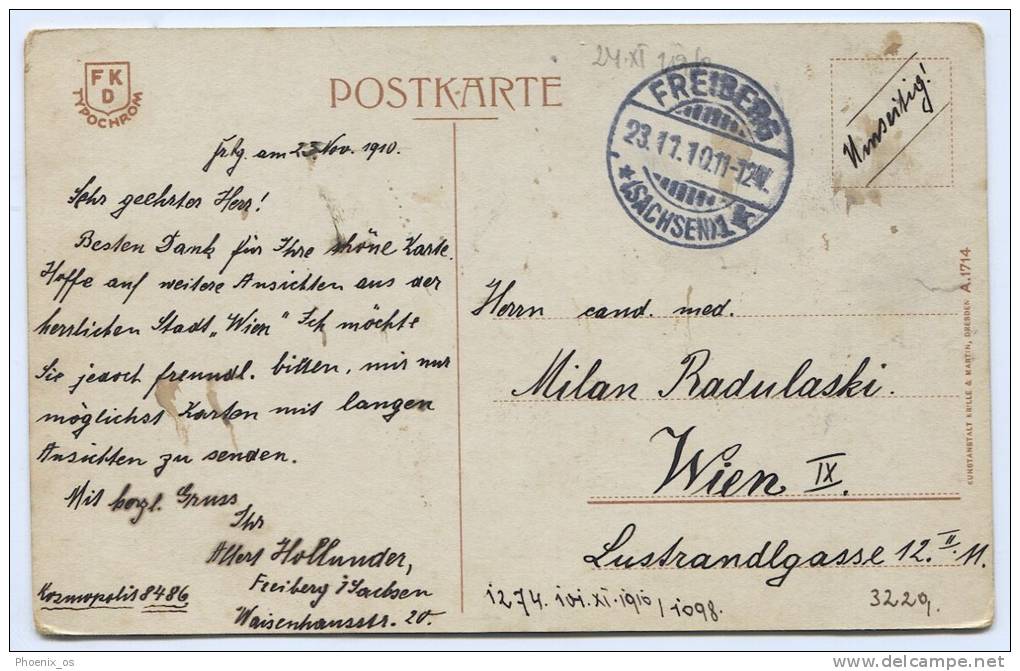 FKD
TYPOCHROM
POSTKARTE
24.XI
FREIBERG
23.11.10.11-12N.
*(SACHSEN)1*
Umseitig!
Frbg. am 23. Nov. 1910.
Sehr geehrter Herr!
Besten Dank für Ihre schöne Karte.
Hoffe auf weitere Ansichten aus der
herrlichen Stadt „Wien" Ich möchte
Sie jedoch freundl. bitten, mir nur
möglichst Karten mit langen
Ansichten zu senden.
Mit herzl. Gruss
Ihr
Albert Hollunder,
Freiberg i/Sachsen
Waisenhausstr. 20.
Kosmopolis 8486
Herrn cand. med.
Milan Radulaski.
Wien IX.
Lustrandlgasse 12. II. 11.
1274. 101.XI.1910/1098.
3229.
KUNSTANSTALT KRILLE & MARTIN, DRESDEN A.1714
Phoenix_os
delcampe.net